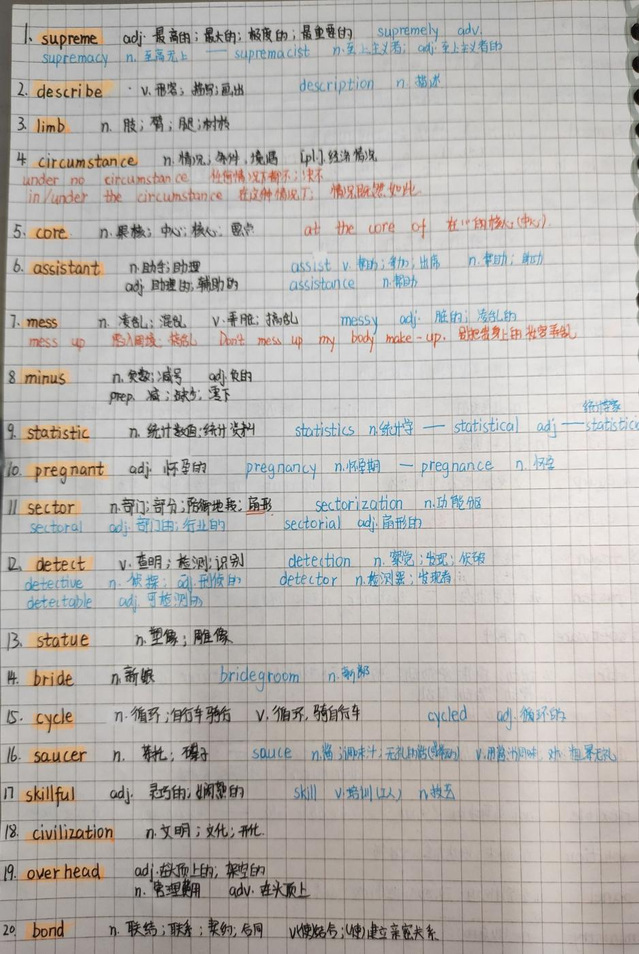 1. supreme adj. 最高的；最大的；极度的；最重要的 supremely adv.
supremacy n. 至高无上 — supremacist n. 至上主义者；adj. 至上主义者的
2. describe v. 形容；描写；画出 description n. 描述
3. limb n. 肢；臂；腿；树枝
4. circumstance n. 情况，条件，境遇 [pl.] 经济情况
under no circumstance 任何情况下都不；决不
in/under the circumstance 在这种情况下；情况既然如此
5. core n. 果核；中心；核心；要点 at the core of 在…的核心(中心)
6. assistant n. 助手；助理 assist v. 帮助；参加；出席 n. 帮助；助动
adj. 助理的；辅助的 assistance n. 帮助
7. mess n. 凌乱；混乱 v. 弄脏；搞乱 messy adj. 脏的；凌乱的
mess up 搞乱 Don't mess up my body make-up. 别把我身上的妆容弄乱
8 minus n. 负数；减号 adj. 负的
prep. 减；缺少；零下
统计学家
9. statistic n. 统计数值；统计资料 statistics n. 统计学 — statistical adj — statistic
10. pregnant adj. 怀孕的 pregnancy n. 怀孕期 — pregnance n. 怀孕
11 sector n. 部门；部分；防御地段；扇形 sectorization n. 功能分区
sectoral adj. 部门的；行业的 sectorial adj. 扇形的
12. detect v. 查明；检测；识别 detection n. 察觉；发现；侦破
detective n. 侦探；adj. 刑侦的 detector n. 检测器；发现者
detectable adj. 可检测的
13. statue n. 塑像；雕像
14. bride n. 新娘 bridegroom n. 新郎
15. cycle n. 循环；自行车骑行 v. 循环，骑自行车 cycled adj. 循环的
16. saucer n. 茶托；碟子 sauce n. 酱；调味汁；无礼的话 v.
17 skillful adj. 灵巧的；娴熟的 skill v. 培训(工人) n. 技艺
18. civilization n. 文明；文化；开化
19. overhead adj. 在头顶上的；架空的
n. 管理费用 adv. 在头顶上
20. bond n. 联结；联系；契约；合同 v. (使)结合；(使)建立亲密关系